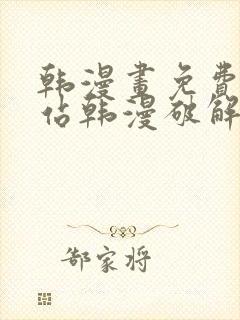 韩漫画免费
佔韩漫破解
郜家将